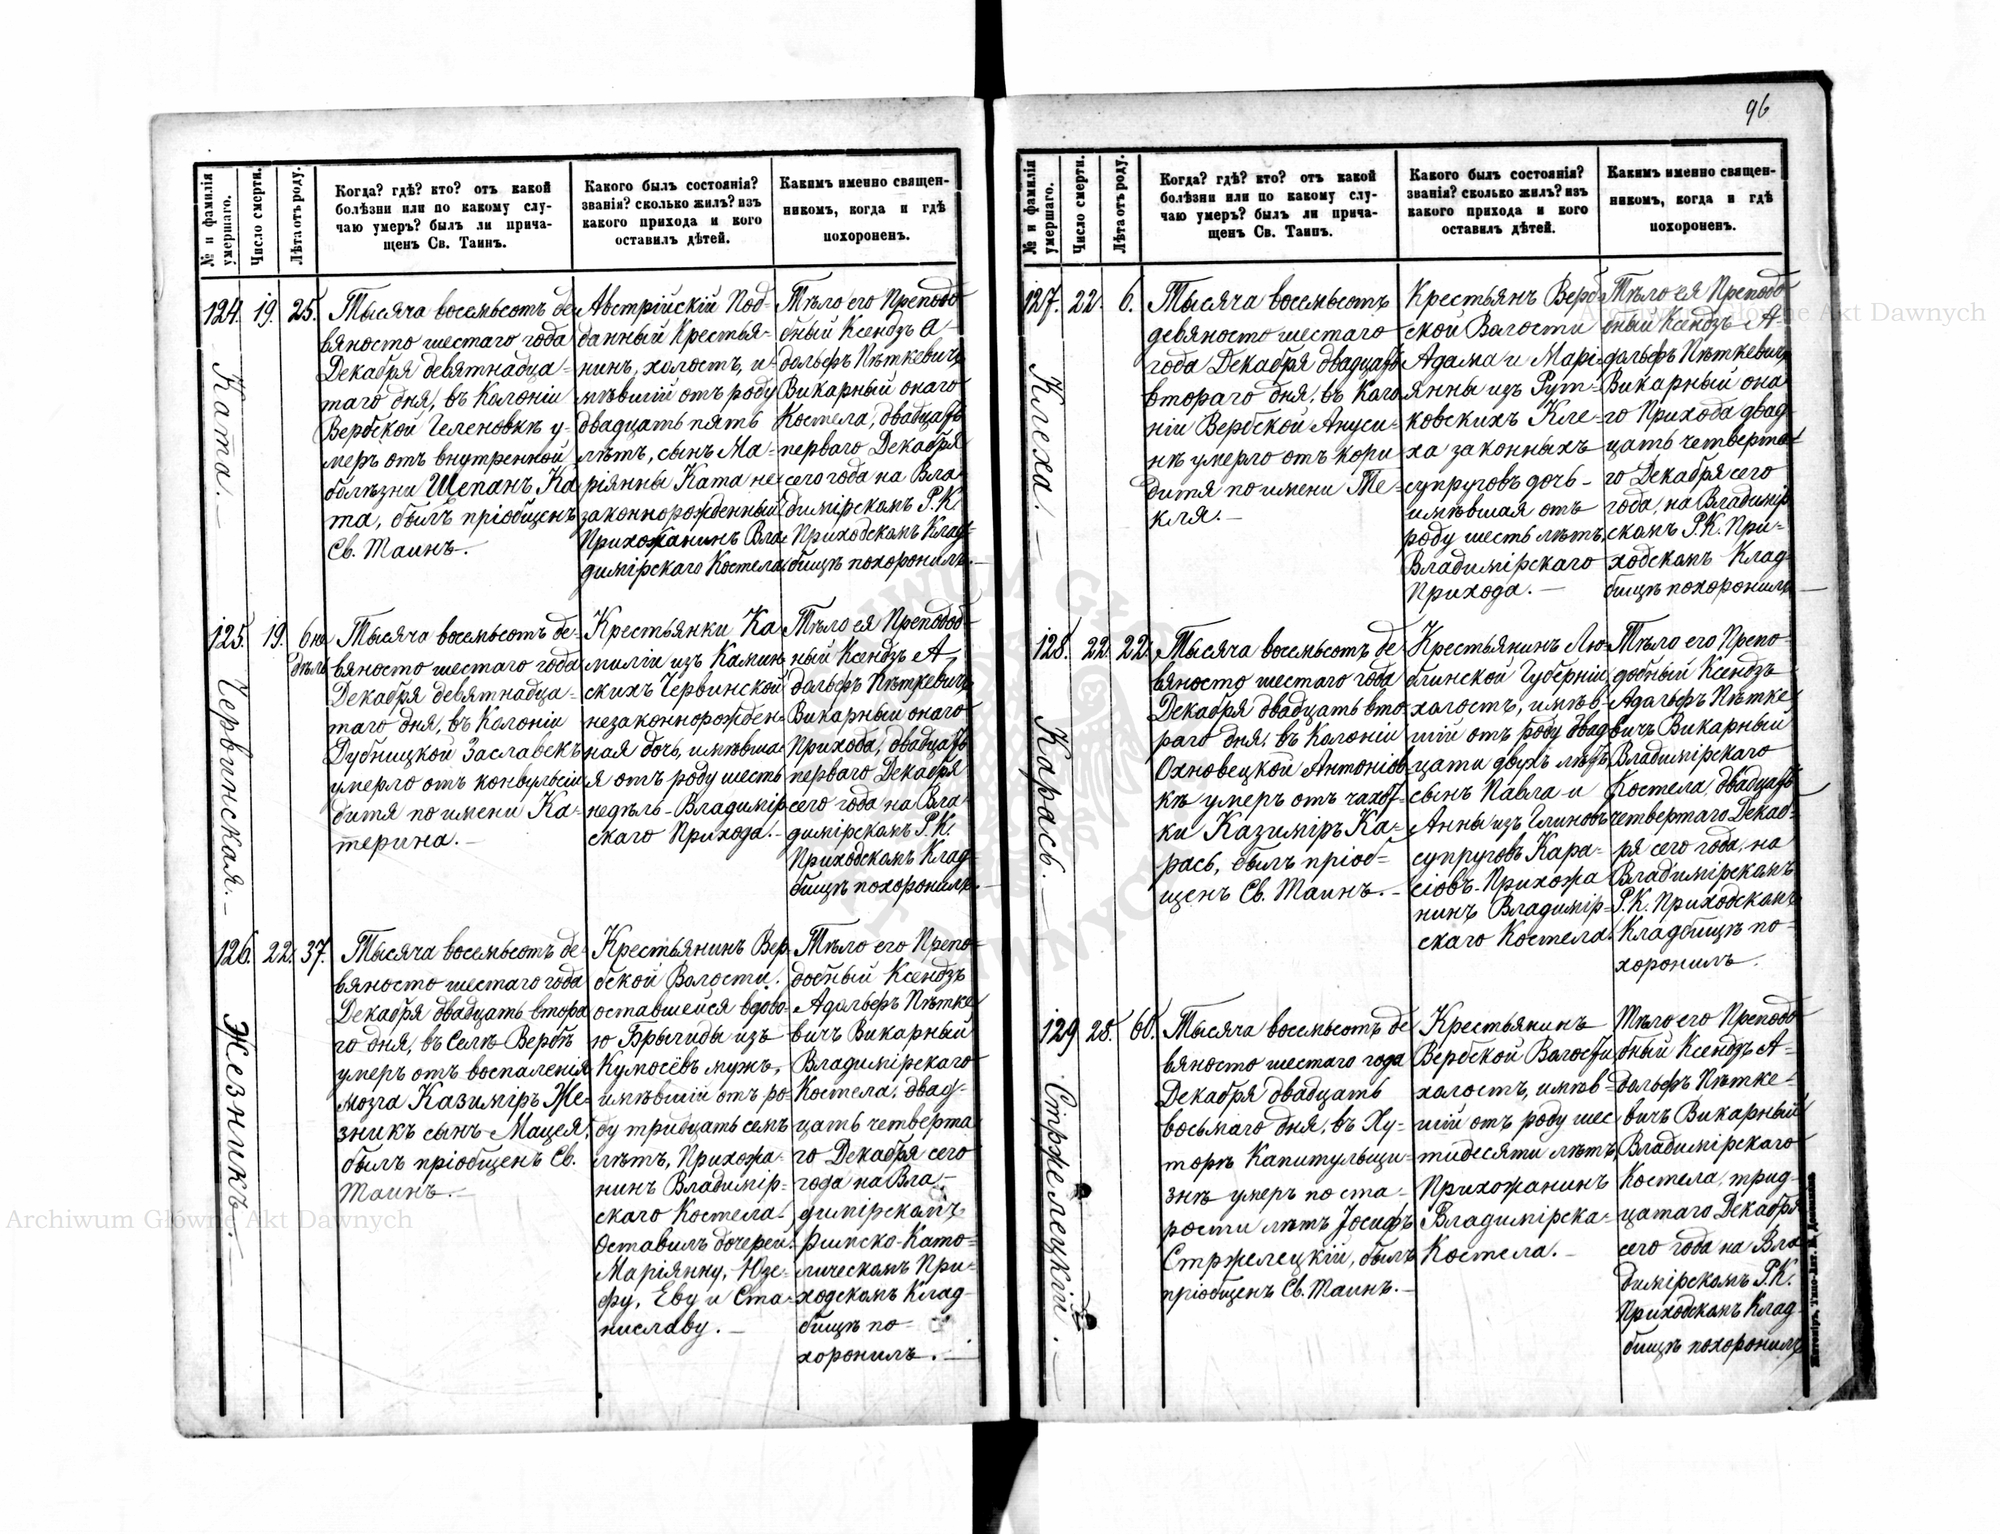 96
№ и фамилія умершаго.
Число смерти.
Лѣта отъ роду.
Когда? гдѣ? кто? отъ какой
болѣзни или по какому слу-
чаю умеръ? былъ ли прича-
щенъ Св. Таинъ.
Какого былъ состоянія?
званія? сколько жилъ? изъ
какого прихода и кого
оставилъ дѣтей.
Какимъ именно священ-
никомъ, когда и гдѣ
похороненъ.
124.
Ката.
19.
25.
Тысяча восемьсотъ де-
вяносто шестаго года
Декабря девятнадца-
таго дня, въ Колоніи
Вербской Геленовкѣ у-
меръ отъ внутренной
болѣзни Щепанъ Ка
та, былъ пріобщенъ
Св. Таинъ.
Австрійскій Под-
данный Крестья-
нинъ, холостъ, и-
мѣвшій отъ роду
двадцать пять
лѣтъ, сынъ Ма-
ріянны Ката не
законнорожденный
Прихожанинъ Вла-
димірскаго Костела
Тѣло его Преподо
бный Ксендзъ А-
дольфъ Пѣткевичъ
Викарный онаго
Костела, двадцать
перваго Декабря
сего года на Вла
димірскомъ Р.К.
Приходскомъ Клад-
бищѣ похоронилъ.
125.
Червинская.
19.
6 не
дѣль
Тысяча восемьсотъ де-
вяносто шестаго года
Декабря девятнадца-
таго дня, въ Колоніи
Дубницкой Заславскъ
умерло отъ конвульсіи
дитя по имени Ка-
терина.
Крестьянки Ка
миліи изъ Камин
скихъ Червинской
незаконнорожден-
ная дочь, имѣвша-
я отъ роду шесть
недѣль - Владимір
скаго Прихода.
Тѣло ея Преподоб-
ный Ксендзъ А
дольфъ Пѣткевичъ
Викарный онаго
Прихода, двадцать
перваго Декабря
сего года на Вла-
димірскомъ Р.К.
Приходскомъ Клад-
бищѣ похоронилъ.
126.
Жезникъ.
22.
37.
Тысяча восемьсотъ де-
вяносто шестаго года
Декабря двадцать втора
го дня, въ Селѣ Вербѣ
умеръ отъ воспаленія
мозга Казиміръ Же-
зникъ сынъ Мацея,
былъ пріобщенъ Св.
Таинъ.
Крестьянинъ Вер-
бской Волости.
оставшейся вдово-
ю Брыгиды изъ
Кумосёвъ мужъ,
имѣвшій отъ ро-
ду тридцать семъ
лѣтъ, Прихожа-
нинъ Владимір-
скаго Костела.
Оставилъ дочерей:
Маріянну, Юзе-
фу, Еву и Ста-
ниславу.
Тѣло его Препо-
добный Ксендзъ
Адольфъ Пѣтке
вичъ Викарный
Владимірскаго
Костела, двад-
цать четверта
го Декабря сего
года на Вла-
димірскомъ
Римско-Като-
лическомъ При-
ходскомъ Клад-
бищѣ по-
хоронилъ.
127.
Клеха.
22.
6.
Тысяча восемьсотъ
девяносто шестаго
года Декабря двадцать
втораго дня, въ Коло
ніи Вербской Ануси-
нѣ умерло отъ кори
дитя по имени Те-
кля.
Крестьянъ Верб-
ской Волости
Адама и Марі-
янны изъ Рут-
ковскихъ Кле-
ха законныхъ
супруговъ дочь -
имѣвшая отъ
роду шесть лѣтъ
Владимірскаго
Прихода.
Тѣло ея Преподо
бный Ксендзъ А-
дольфъ Пѣткевичъ
Викарный она
го Прихода двад-
цать четверта-
го Декабря сего
года, на Владимір
скомъ Р.К. При-
ходскомъ Клад
бищѣ похоронилъ
128.
Карась.
22.
22.
Тысяча восемьсотъ де
вяносто шестаго года
Декабря двадцать вто-
раго дня, въ Колоніи
Охновецкой Антонiов-
кѣ умеръ отъ чахот-
ки Казиміръ Ка-
рась, былъ пріоб-
щенъ Св. Таинъ.
Крестьянинъ Лю-
блинской Губерніи
холостъ, имѣв-
шій отъ роду двад
цати двухъ лѣтъ
сынъ Павла и
Анны изъ Глиновъ
супруговъ Кара-
сіовъ - Прихожа
нинъ Владимір-
скаго Костела.
Тѣло его Препо-
добный Ксендзъ
Адольфъ Пѣтке
вичъ Викарный
Владимірскаго
Костела двадцать
четвертаго Декаб-
ря сего года, на
Владимірскомъ
Р.К. Приходскомъ
Кладбищѣ по-
хоронилъ.
129
Стржелецкій.
28.
60.
Тысяча восемьсотъ де
вяносто шестаго года
Декабря двадцать
восьмаго дня, въ Ху-
торѣ Капитульщи-
знѣ умеръ по ста-
рости лѣтъ Іосифъ
Стржелецкій, былъ
пріобщенъ Св. Таинъ.
Крестьянинъ
Вербской Волости
холостъ, имѣв-
шій отъ роду шес
тидесяти лѣтъ,
Прихожанинъ
Владимірска-
Костела.
Тѣло его Преподо
бный Ксендзъ А-
дольфъ Пѣтке-
вичъ Викарный
Владимірскаго
Костела, трид-
цатаго Декабря
сего года на Вла
димірскомъ Р.К.
Приходскомъ Клад-
бищѣ похоронилъ
Archiwum Główne Akt Dawnych
Archiwum Główne Akt Dawnych